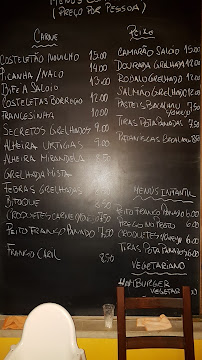 MENUS
(PREÇO POR PESSOA)
CARNE
COSTELETÃO NOVILHO 15.00
PICANHA/NACO 14.00
BIFE A SALOIO
COSTELETAS BORREGO 12.00
FRANCESINHA 10.00
SECRETOS GRELHADOS 9.00
ALHEIRA URTIGAS
ALHEIRA MIRANDELA
GRELHADA MISTA
FEBRAS GRELHADAS
BITOQUE
CROQUETES CARNE 7.50
PEITO FRANGO PANADO 7.50
FRANGO CARIL 8.50
PEIXE
CAMARÃO SALOIO
DOURADA GRELHADA
ROBALO GRELHADO
SALMÃO GRELHADO
PASTEIS BACALHAU
TIRAS POTA PANADAS
PATANISCAS BACALHAU
MENUS INFANTIL
PEITO FRANGO PANADO 6.00
PREGO NO PRATO 6.00
CROQUETES 6.00
TIRAS POTA PANADAS 6.00
VEGETARIANO
HAMBURGER
VEGETAR